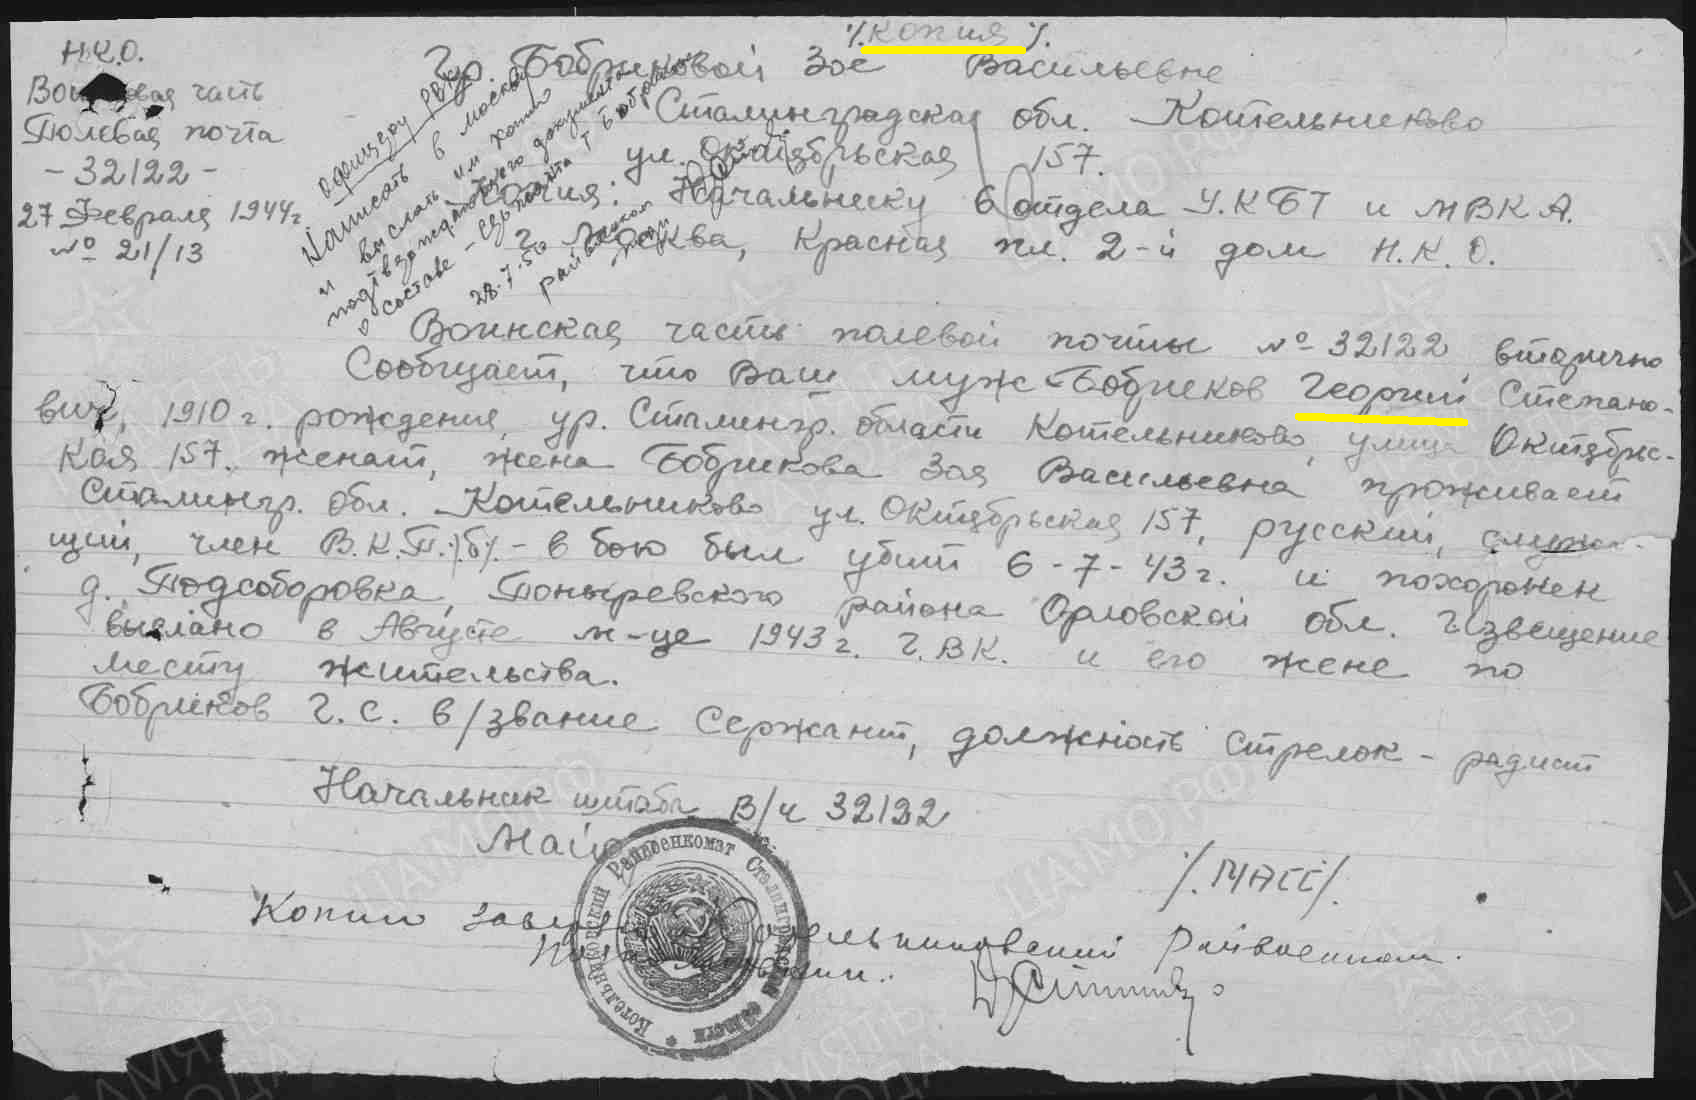 ./.копия ./.
Н.К.О.
Воинская часть
Полевая почта
- 32122 -
27 Февраля 1944 г
№ 21/13
Гр. Бобриковой Зое Васильевне
Сталинградская обл. Котельниково
ул. Октябрьская 157.
Копия: Начальнику 6 отдела У.К БТ и МВ К А.
г. Москва, Красная пл. 2-й дом Н.К.О.
офицеру
Написать в Москву
и выслать им копии
подтвзождающего документа
о составе -
28.7.50
Воинская часть полевой почты № 32122 вторично
Сообщает, что Ваш муж Бобриков Георгий Степано-
вич, 1910 г. рождения, ур. Сталингр. области Котельниково, улица Октябрь-
кая 157. женат, жена Бобрикова Зоя Васильевна проживает
Сталингр. обл. Котельниково ул. Октябрьская 157, русский, служа-
щий, член В.К.П./б/. - в бою был убит 6 - 7 - 43 г. и похоронен
д. Подсоборовка, Поныревского района Орловской обл. Извещение
выслано в Августе м-це 1943 г. Г.ВК. и его жене по
месту жительства.
Бобриков Г. С. в/звание Сержант, должность Стрелок - радист
Начальник штаба В/ч 32122
Майор
/.МАСС/.
Копию заверил Котельниковский Райвоенком.
Котельниковский Райвоенкомат Сталинградской области